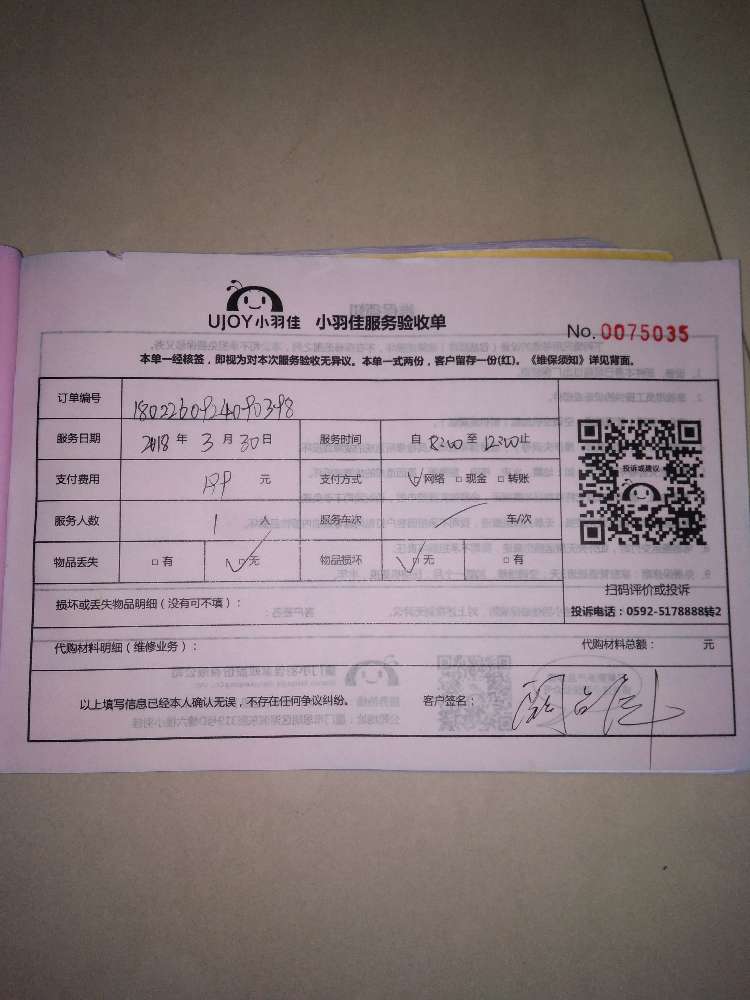 UJOY小羽佳 小羽佳服务验收单
No. 0075035
本单一经核签，即视为对本次服务验收无异议。本单一式两份，客户留存一份(红)。《维保须知》详见背面。
订单编号
服务日期 2018 年 3 月 30 日 服务时间 自 8:00 至 12:00 止
支付费用 APP 元 支付方式 网络 现金 转账
服务人数 1 人 服务车次 车/次
物品丢失 有 无 物品损坏 无 有
投诉或建议
扫码评价或投诉
投诉电话：0592-5178888转2
损坏或丢失物品明细（没有可不填）：
代购材料明细（维修业务）： 代购材料总额： 元
以上填写信息已经本人确认无误，不存在任何争议纠纷。 客户签名：